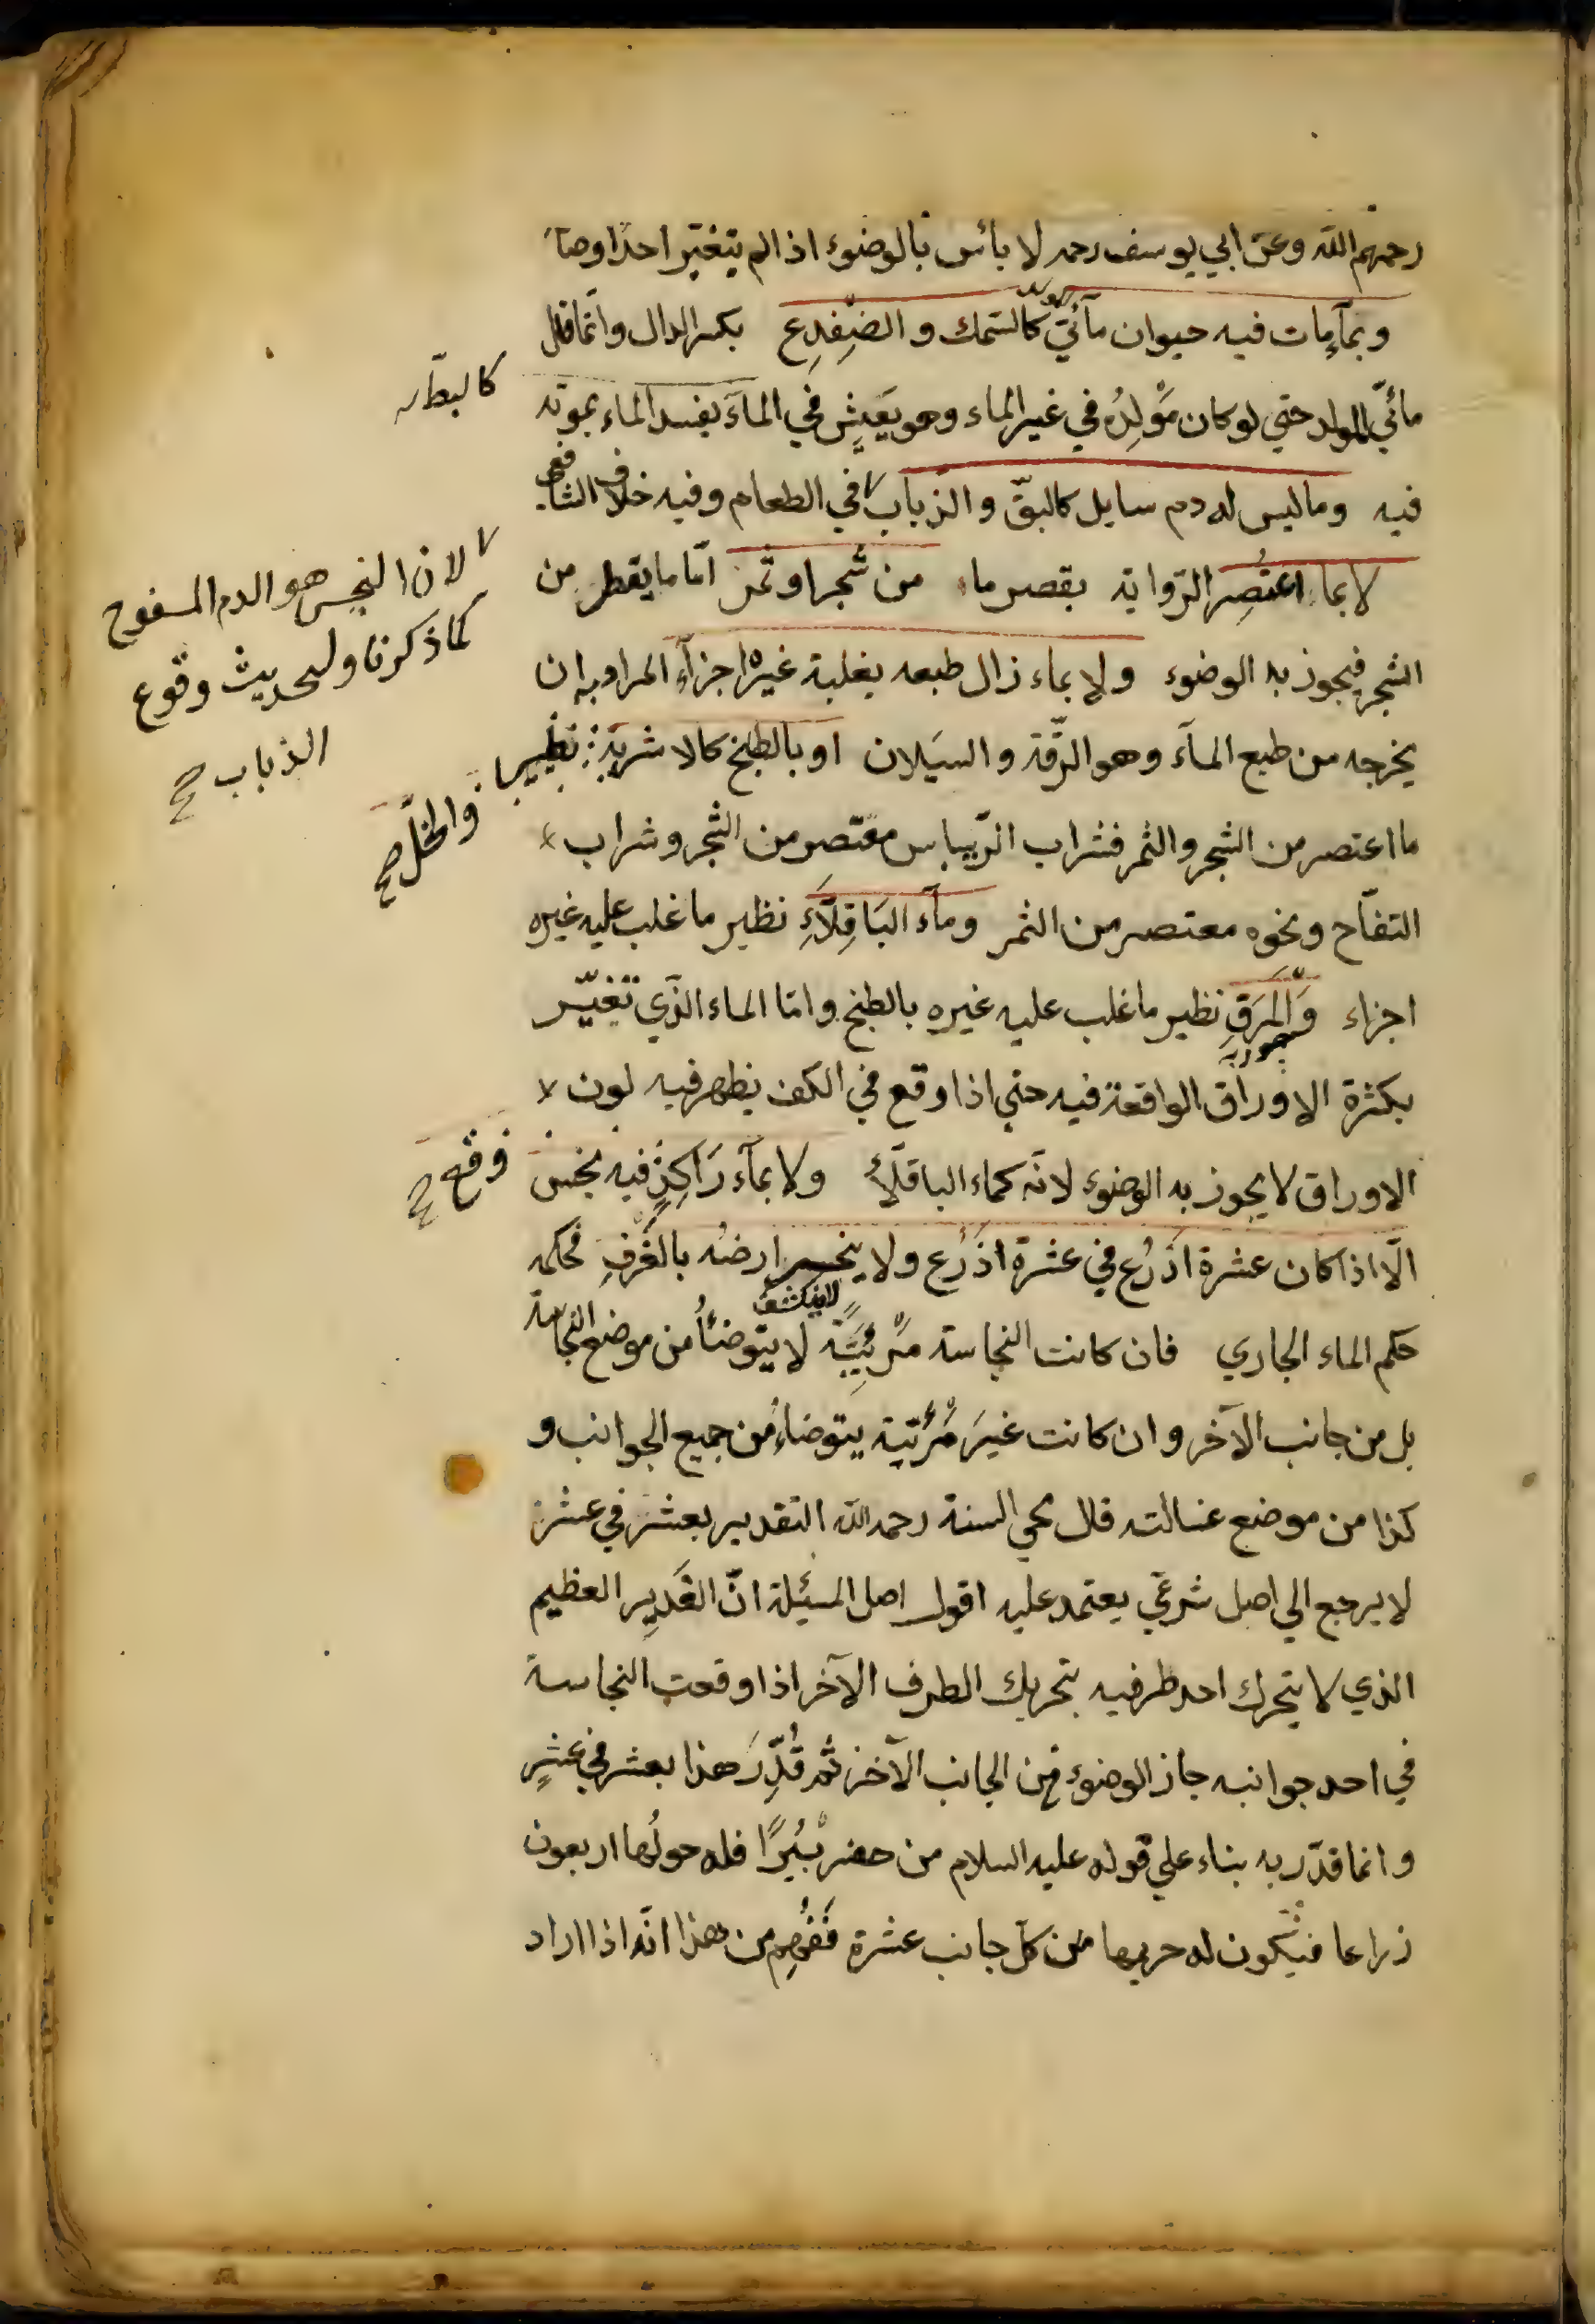 رحمهم الله وعن ابي يوسف رحمه لا بأس بالوضوء اذا لم يتغير احد اوصا
وبمآء مات فيه حيوان مآئيّ المولد كالسمك والضِّفدِع بكسر الدال وانما قال
مائيّ المولد حتي لو كان مَوْلِدُه في غير الماء وهو يَعِيش في المآء يفسد الماء بموته
كالبط
فيه وما ليس له دم سايل كالبقّ والذباب في الطعام وفيه خلاف الشافعي
لان النجس هو الدم المسفوح
كما ذكرنا ولحديث وقوع
الذباب صح
لا بما اعتُصِر الرواية بقصر ما من شجر او ثمر امّا ما يقطر من
الشجر فيجوز به الوضوء ولا بماء زال طبعه بغلبة غيره اجزآء المراد به ان
يخرجه من طبع المآء وهو الرّقة والسيَلان او بالطبخ كالاشربة نظير
والخلّ صح
ما اعتصر من الشجر والثمر فشراب الرّيباس معتصر من الشجر وشراب
التفّاح ونحوه معتصر من الثمر ومآء البَاقِلَّآءِ نظير ما غلب عليه غيره
اجزاء وَالمَرَقِ نظير ما غلب عليه غيره بالطبخ وامّا الماء الذي تغيّر
بكثرة الاوراق الواقعة فيه حتي اذا وقع في الكف يظهر فيه لون
الاوراق لا يجوز به الوضوء لانّه كماء الباقلّاء ولا بمآء رَاكِدٍ فيه نجس
وقع صح
الّا اذا كان عشرة اذرُع في عشرة اذرُع ولا ينحسر ارضه بالغَرْفِ فحكمه
لا ينكشف
حكم الماء الجاري فان كانت النجاسة مَرْئِيَّةً لا يتوضأُ من موضع النجاسة
بل من جانب الآخر وان كانت غيرَ مَرْئيّة يتوضأُ من جميع الجوانب و
كذا من موضع غسالته قال محي السنة رحمه الله التقدير بعشر في عشر
لا يرجع الي اصل شرعيّ يعتمد عليه اقول اصل المسئلة انّ الغَدِير العظيم
الذي لا يتحرك احد طرفيه بتحريك الطرف الآخر اذا وقعت النجاسة
في احد جوانبه جاز الوضوء من الجانب الآخر ثم قُدِّرَ هذا بعشر في عشرٍ
وانما قدّر به بناء علي قوله عليه السلام من حفر بئيرًا فله حولُها اربعون
ذراعا فيكون له حريمها من كلّ جانب عشرة فَفُهِم من هذا انّه اذا اراد